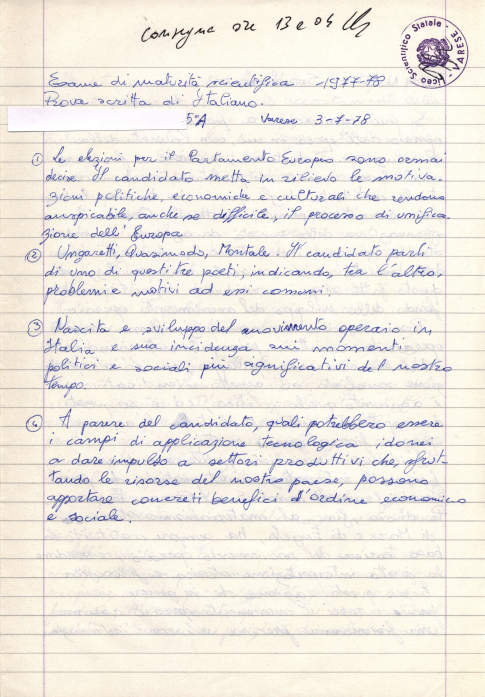 Consegna ore 13 e 04
Liceo Scientifico Statale - VARESE
Esame di maturità scientifica 1977-78
Prova scritta di Italiano.
5ª A Varese 3-7-78
① Le elezioni per il Parlamento Europeo sono ormai
decise. Il candidato metta in rilievo le motiva-
zioni politiche, economiche e culturali che rendono
auspicabile, anche se difficile, il processo di unifica-
zione dell'Europa
② Ungaretti, Quasimodo, Montale. Il candidato parli
di uno di questi tre poeti, indicando, tra l'altro,
problemi e motivi ad essi comuni.
③ Nascita e sviluppo del movimento operaio in
Italia e sua incidenza sui momenti
politici e sociali più significativi del nostro
tempo.
④ A parere del candidato, quali potrebbero essere
i campi di applicazione tecnologica idonei
a dare impulso a settori produttivi che, sfrut-
tando le risorse del nostro paese, possono
apportare concreti benefici d'ordine economico
e sociale.